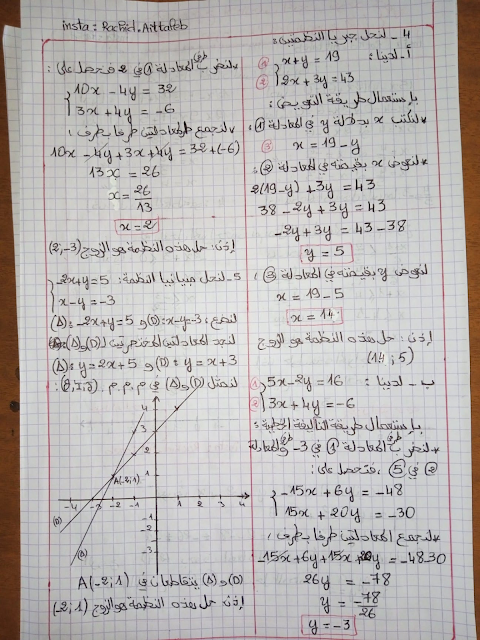 insta : Rachid.Aittaleb
4 - لنحل جبريا النظمتين :
أ - لدينا :
① x + y = 19
② 2x + 3y = 43
باستعمال طريقة التعويض :
* لنكتب x بدلالة y في المعادلة ① :
③ x = 19 - y
* لنعوض x بقيمته في المعادلة ② :
2(19-y) + 3y = 43
38 - 2y + 3y = 43
-2y + 3y = 43 - 38
y = 5
لنعوض y بقيمته في المعادلة ③ :
x = 19 - 5
x = 14
إذن : حل هذه النظمة هو الزوج
(14 ; 5)
ب - لدينا :
① 5x - 2y = 16
② 3x + 4y = -6
باستعمال طريقة التأليفة الخطية :
* لنضرب طرفي المعادلة ① في -3 و طرفي المعادلة
② في 5 ، فنحصل على :
-15x + 6y = -48
15x + 20y = -30
* لنجمع المعادلتين طرفا بطرف ،
-15x + 6y + 15x + 20y = -48-30
26y = -78
y = -78/26
y = -3
* لنضرب طرفي المعادلة ① في 2 فنحصل على :
10x - 4y = 32
3x + 4y = -6
* لنجمع المعادلتين طرفا بطرف :
10x - 4y + 3x + 4y = 32 + (-6)
13x = 26
x = 26/13
x = 2
إذن : حل هذه النظمة هو الزوج (2,-3)
5 - لنحل مبيانيا النظمة :
-2x+y = 5
x - y = -3
لنضع : (D): x-y=-3 و (Δ): -2x+y=5
لنحدد المعادلتين المختصرتين لـ (D) و (Δ) :
(D) : y = x + 3 و (Δ) : y = 2x + 5
لنمثل (D) و (Δ) في م.م.م. (O,I,J) :
4
3
2
1
A(-2;1)
-4 -3 -2 -1 1 2 3 4
-1
-2
-3
(D)
(Δ)
(D) و (Δ) يتقاطعان في A(-2;1)
إذن حل هذه النظمة هو الزوج (-2;1)